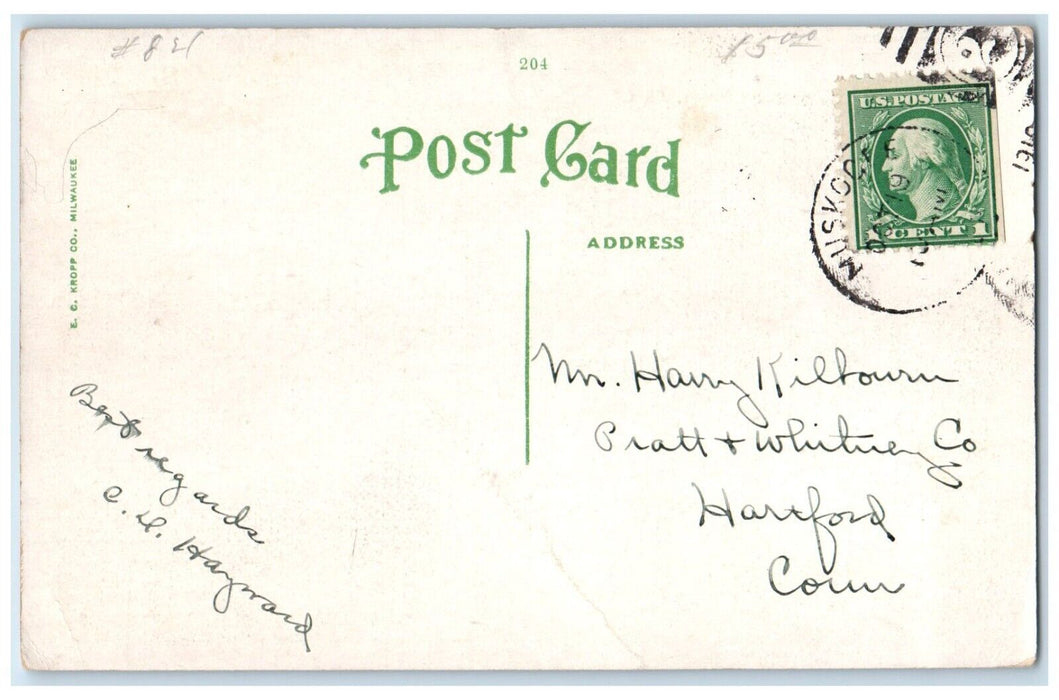 #821
204
1500
POST CARD
ADDRESS
E. C. KROPP CO., MILWAUKEE
U.S. POSTAGE
1 CENT 1
MUSKOGEE
OCT 19
1916
Mr. Harry Kilbourn
Pratt + Whitney Co
Hartford
Conn
Best regards
C. D. Hayward